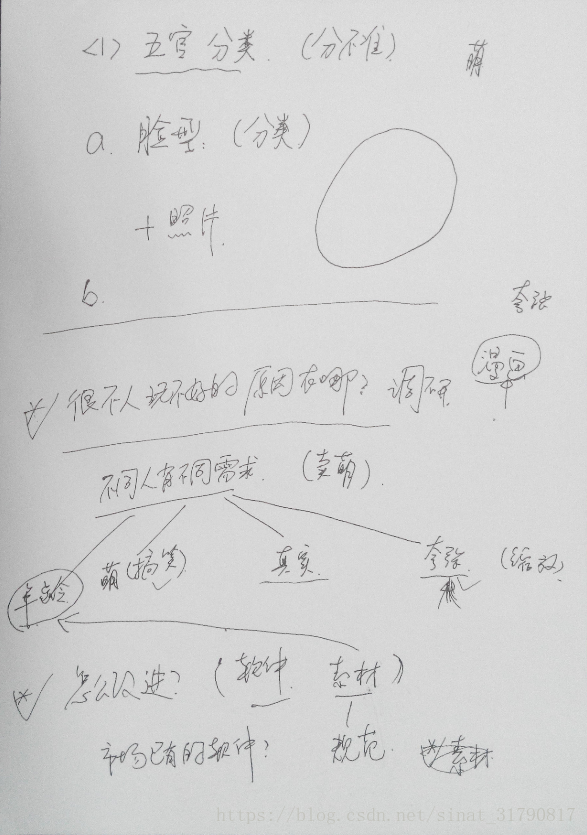 <1> 五官分类. (分不准)
萌
a. 脸型. (分类)
+ 照片.
b.
夸张
漫画
很不人玩不好的原因在哪? 调研
不同人有不同需求. (卖萌).
年龄 萌(搞笑) 真实. 夸张 (缩放)
怎么改进? (软件. 素材)
市场已有的软件? 规范. 素材
https://blog.csdn.net/sinat_31790817